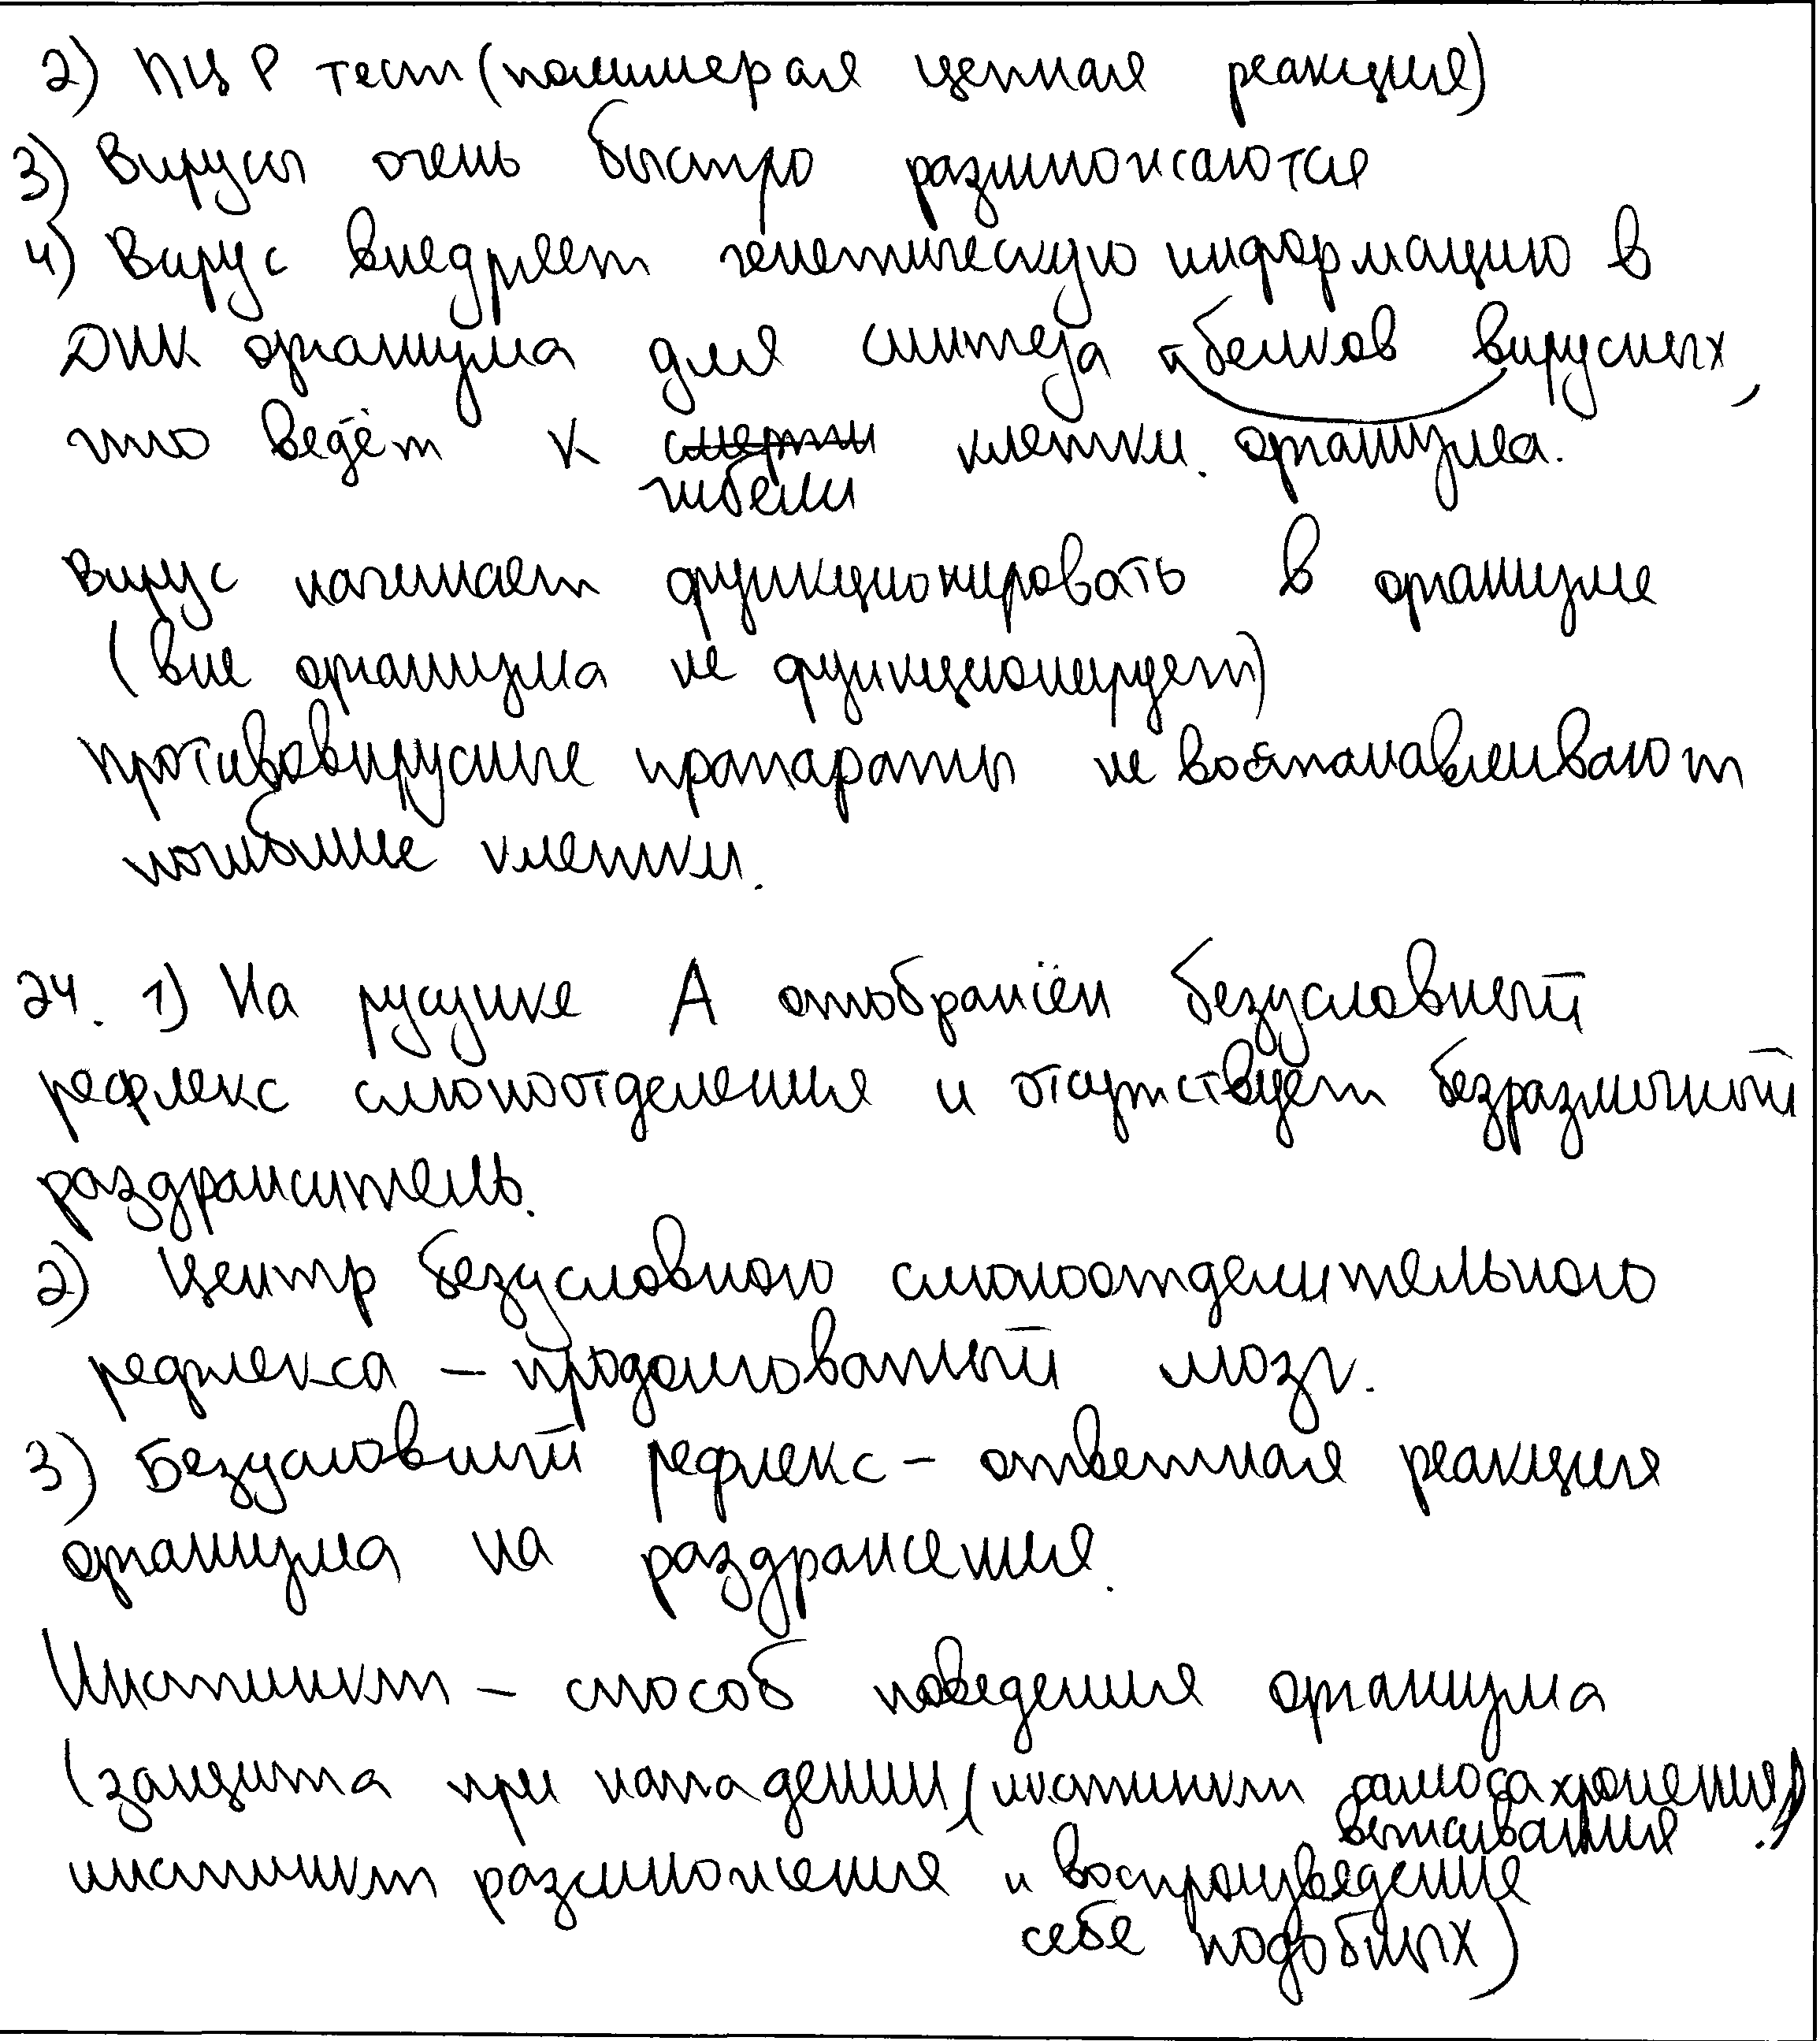 2) ПЦР тест (полимерая цепная реакция)
3) Вирусы очень быстро размножаются
4) Вирус внедряет генетическую информацию в
ДНК организма для синтеза белков вирусных,
что ведёт к смерти клетки организма.
гибели
Вирус начинает функционировать в организме
(вне организма не функционирует)
противовирусные препараты не востанавливают
погибшие клетки.
24. 1) На рисунке А отображён безусловный
рефлекс слюноотделения и отсутствует безразличный
раздражитель.
2) Центр безусловного слюноотделительного
рефлекса – продолговатый мозг.
3) Безусловный рефлекс – ответная реакция
организма на раздражения.
Инстинкт – способ поведения организма
(защита при нападении (инстинкт самосахронения)
выживания
инстинкт размножения и воспроизведение
себе подобных)